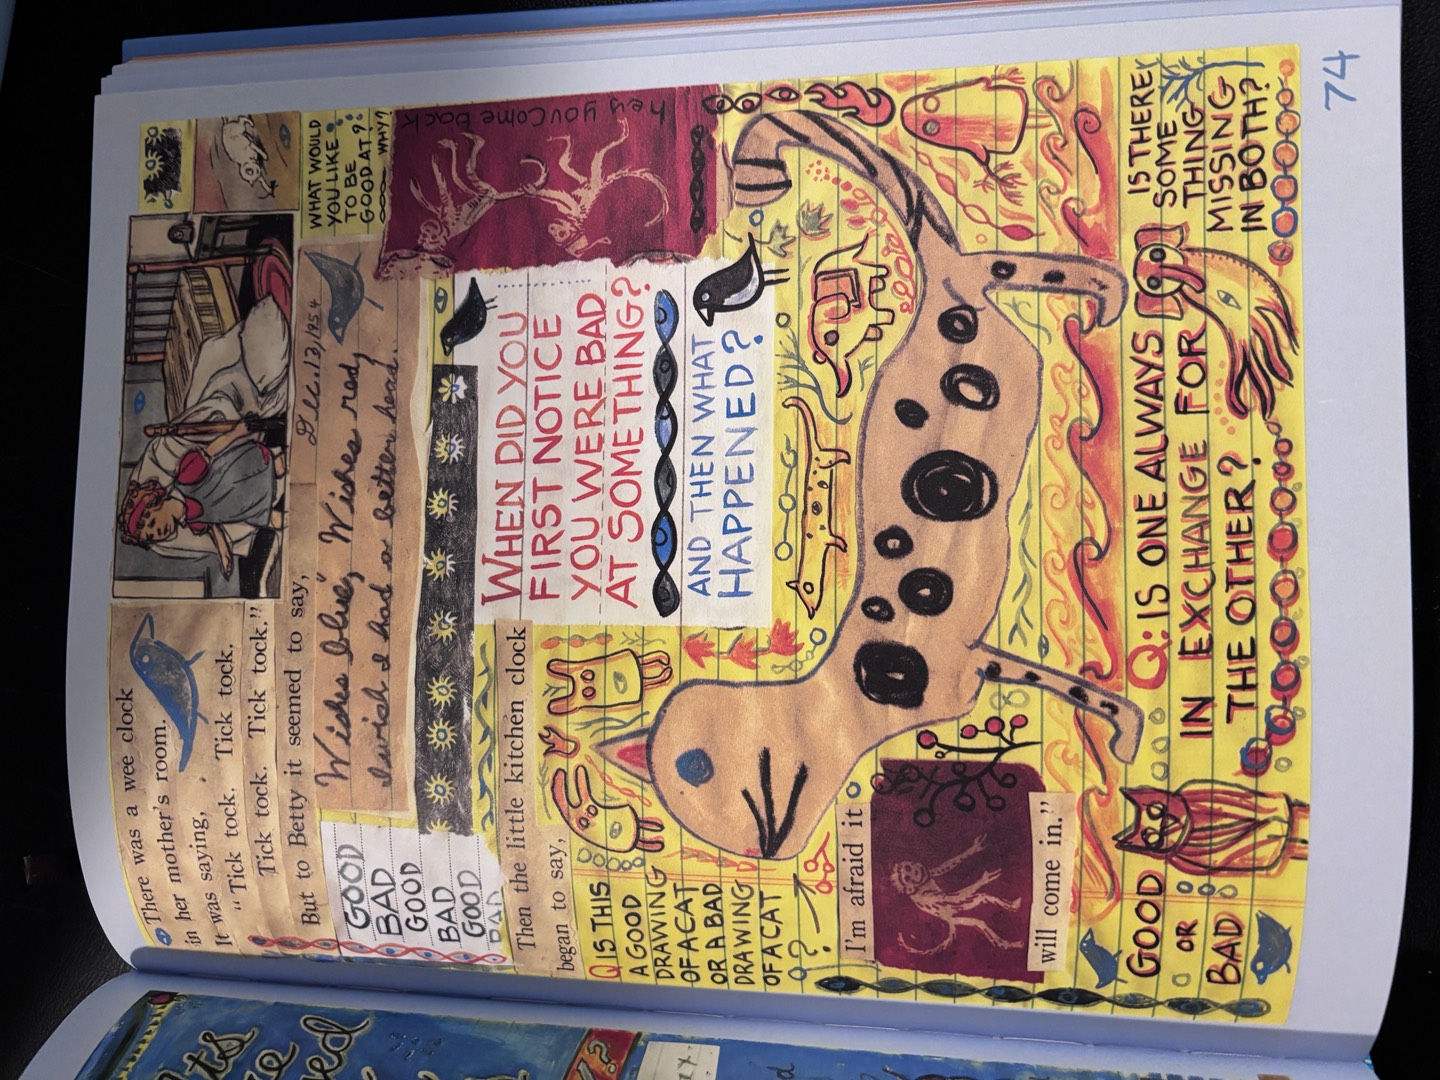 There was a wee clock
in her mother's room.
It was saying,
"Tick tock. Tick tock.
Tick tock. Tick tock."
But to Betty it seemed to say,
Dec. 13, 1954
"Wishes blue," Wishes red
I wish I had a better head.
WHAT WOULD
YOU LIKE
TO BE
GOOD AT?
WHY?
hey you come back
GOOD
BAD
GOOD
BAD
GOOD
BAD
Then the little kitchen clock
began to say,
WHEN DID YOU
FIRST NOTICE
YOU WERE BAD
AT SOMETHING?
AND THEN WHAT
HAPPENED?
Q IS THIS
A GOOD
DRAWING
OF A CAT
OR A BAD
DRAWING
OF A CAT
?
I'm afraid it
will come in."
GOOD
OR
BAD
Q: IS ONE ALWAYS
IN EXCHANGE FOR
THE OTHER?
IS THERE
SOME
THING
MISSING
IN BOTH?
74